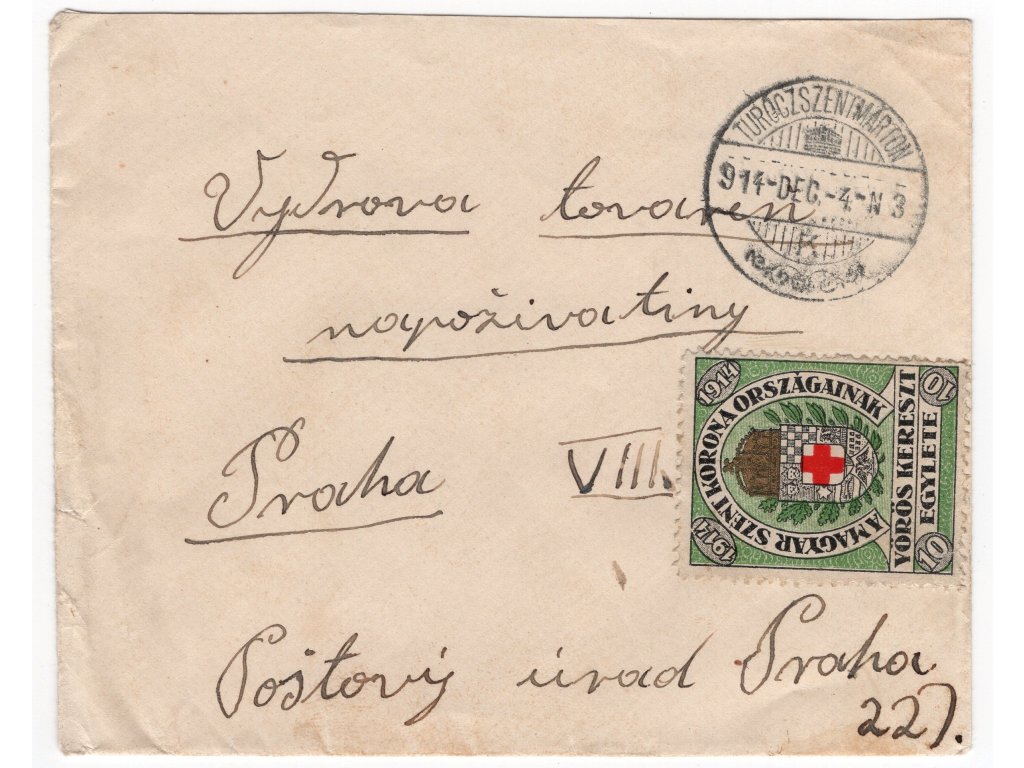 TURÓCZSZENTMÁRTON
914-DEC.-4-N 3
K
Vydrova tovaren
napoživatiny
Praha VIII.
1914
10
A MAGYAR SZENT KORONA ORSZÁGAINAK
VÖRÖS KERESZT
EGYLETE
1914
10
Poštový úrad Praha
22).